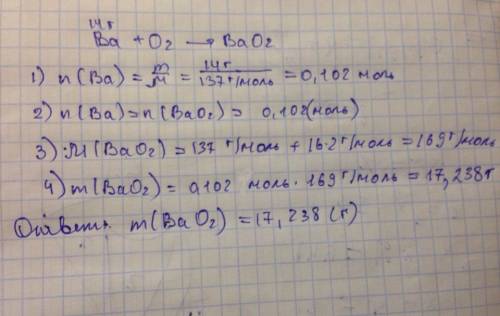 14 г
Ba + O₂ → BaO₂
1) n(Ba) = m/M = 14 г/137 г/моль = 0,102 моль
2) n(Ba) = n(BaO₂) = 0,102 (моль)
3) M(BaO₂) = 137 г/моль + 16·2 г/моль = 169 г/моль
4) m(BaO₂) = 0,102 моль · 169 г/моль = 17,238 г
Ответ: m(BaO₂) = 17,238 (г)